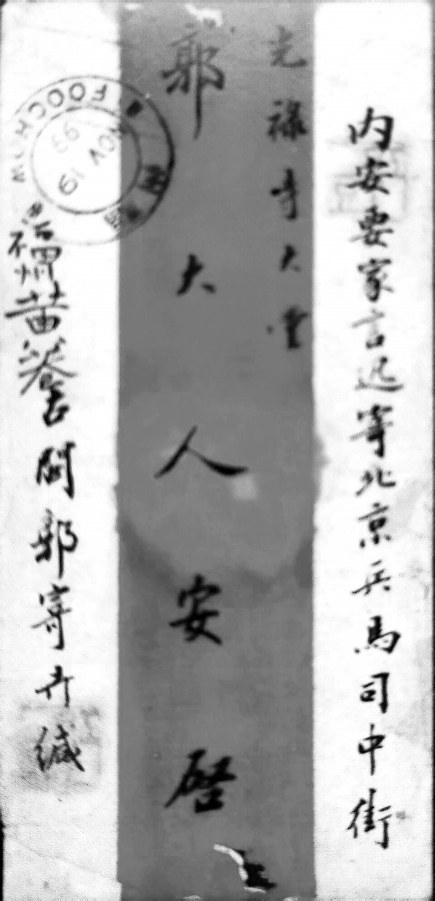 内安要家言迅寄北京兵馬司中街
光祿寺大堂
郭大人安啓
福州郭寄緘
FOOCHOW
19 NOV 99